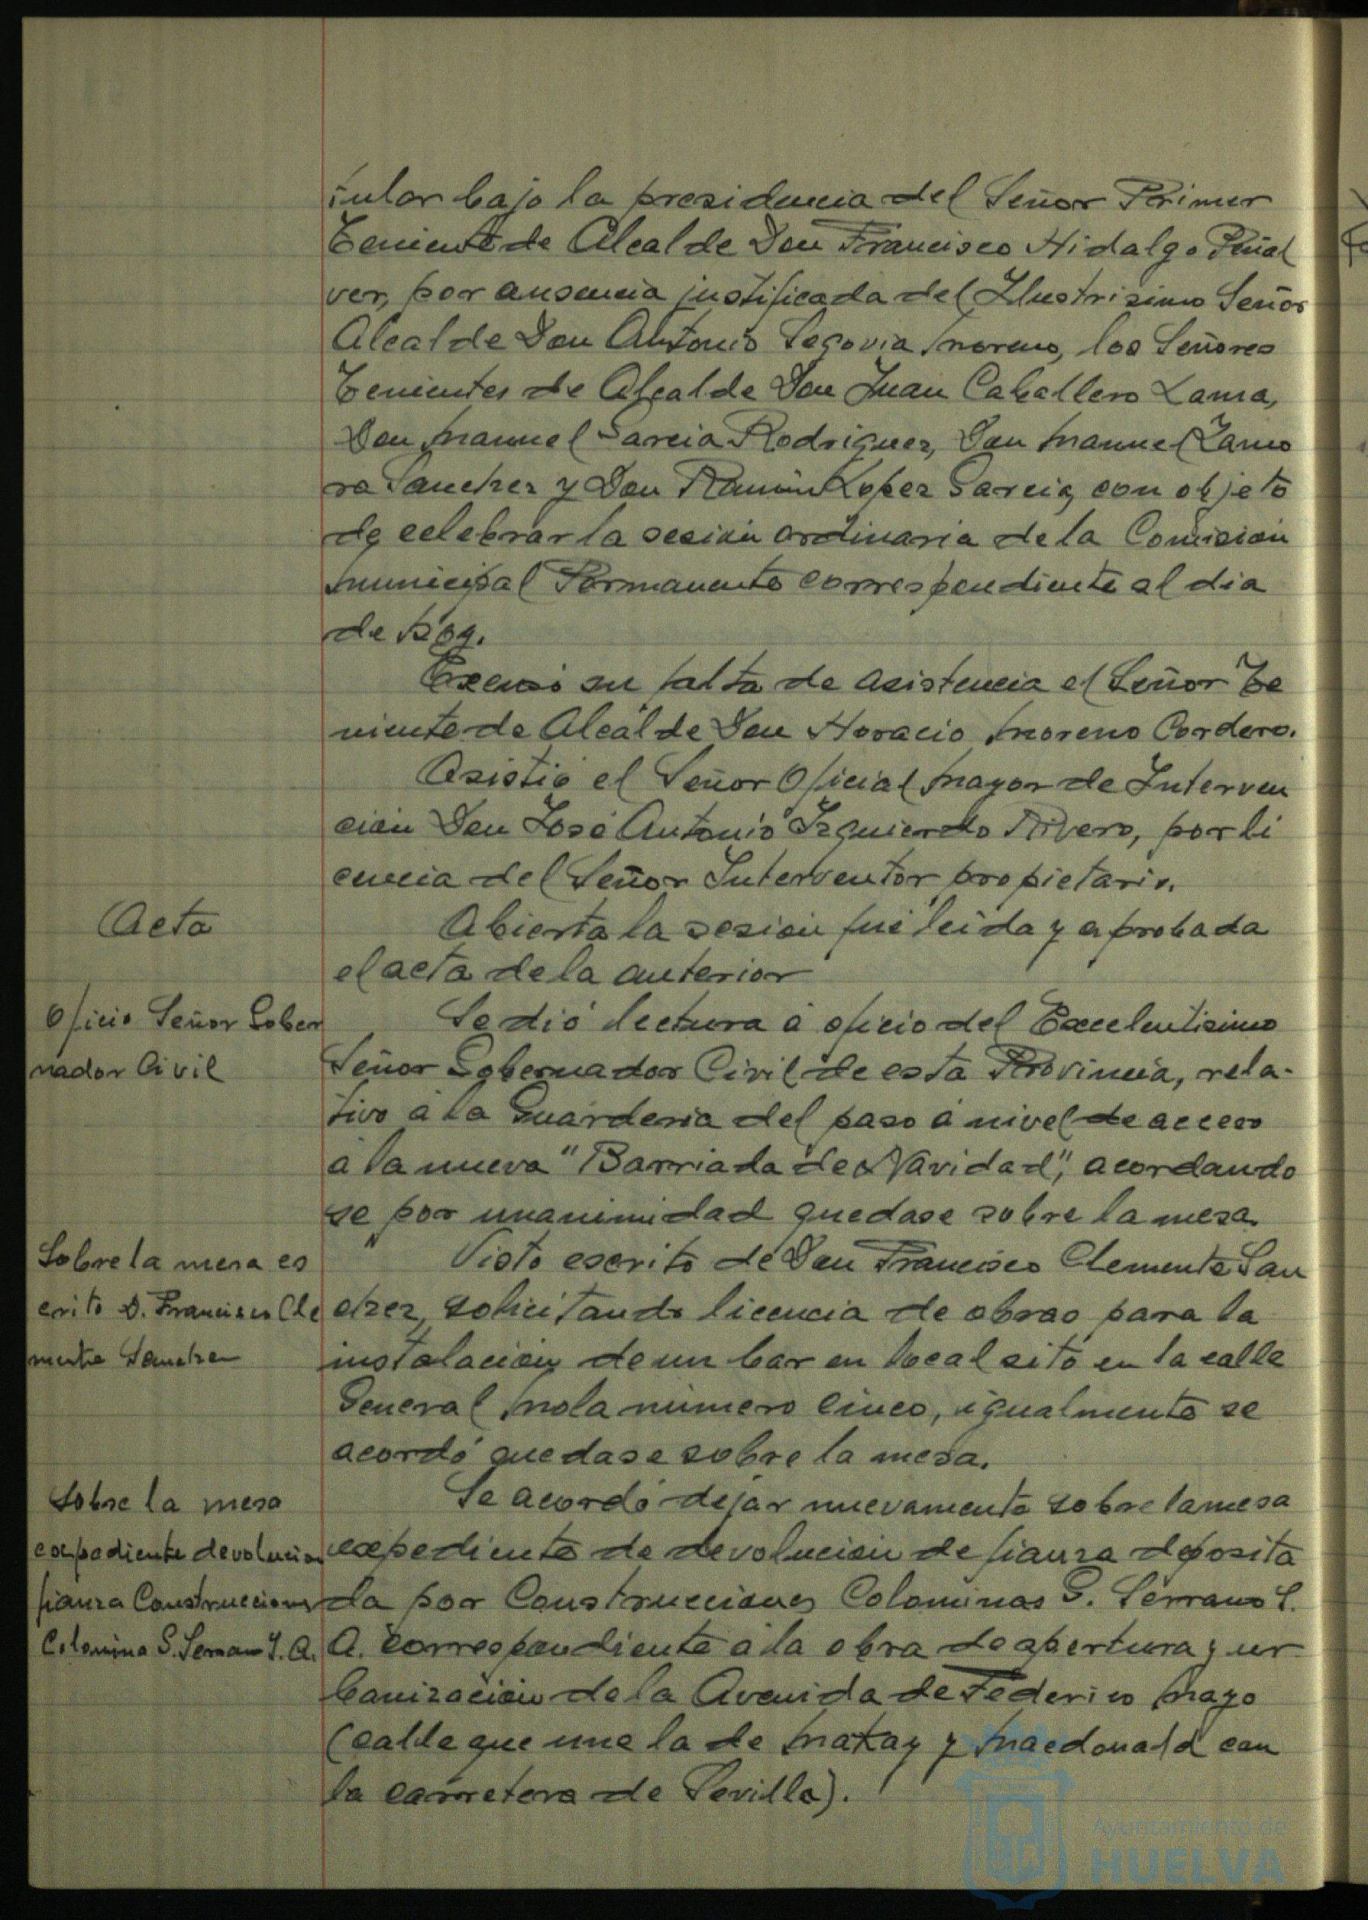 tular bajo la presidencia del Señor Primer
Teniente de Alcalde Don Francisco Hidalgo Peñal
ver, por ausencia justificada del Ilustrisimo Señor
Alcalde Don Antonio Segovia Moreno, los Señores
Tenientes de Alcalde Don Juan Caballero Lama,
Don Manuel Garcia Rodriguez, Don Manuel Zamo
ra Sanchez y Don Ramón Lopez Garcia, con objeto
de celebrar la sesión ordinaria de la Comisión
Municipal Permanente correspondiente al dia
de hoy.
Excusó su falta de asistencia el Señor Te
niente de Alcalde Don Horacio Moreno Cordero.
Asistió el Señor Oficial Mayor de Interven
ción Don José Antonio Izquierdo Rivero, por li
cencia del Señor Interventor propietario.
Acta
Abierta la sesión fué leida y aprobada
el acta de la anterior
Oficio Señor Gober
nador Civil
Se dió lectura á oficio del Excelentisimo
Señor Gobernador Civil de esta Provincia, rela-
tivo á la Guarderia del paso á nivel de acceso
á la nueva "Barriada de Navidad", acordando
se por unanimidad quedase sobre la mesa.
Sobre la mesa es
crito D. Francisco Cle
mente Sanchez
Visto escrito de Don Francisco Clemente San
chez, solicitando licencia de obras para la
instalación de un bar en local sito en la calle
General Mola número cinco, igualmente se
acordó quedase sobre la mesa.
Sobre la mesa
expediente devolución
fianza Construcciones
Colomina G. Serrano S. A.
Se acordó dejar nuevamente sobre la mesa
expediente de devolución de fianza deposita
da por Construcciones Colominas G. Serrano S.
A. correspondiente á la obra de apertura y ur
banización de la Avenida de Federico Mayo
(calle que une la de Makay y Macdonald con
la carretera de Sevilla).
Ayuntamiento de
HUELVA